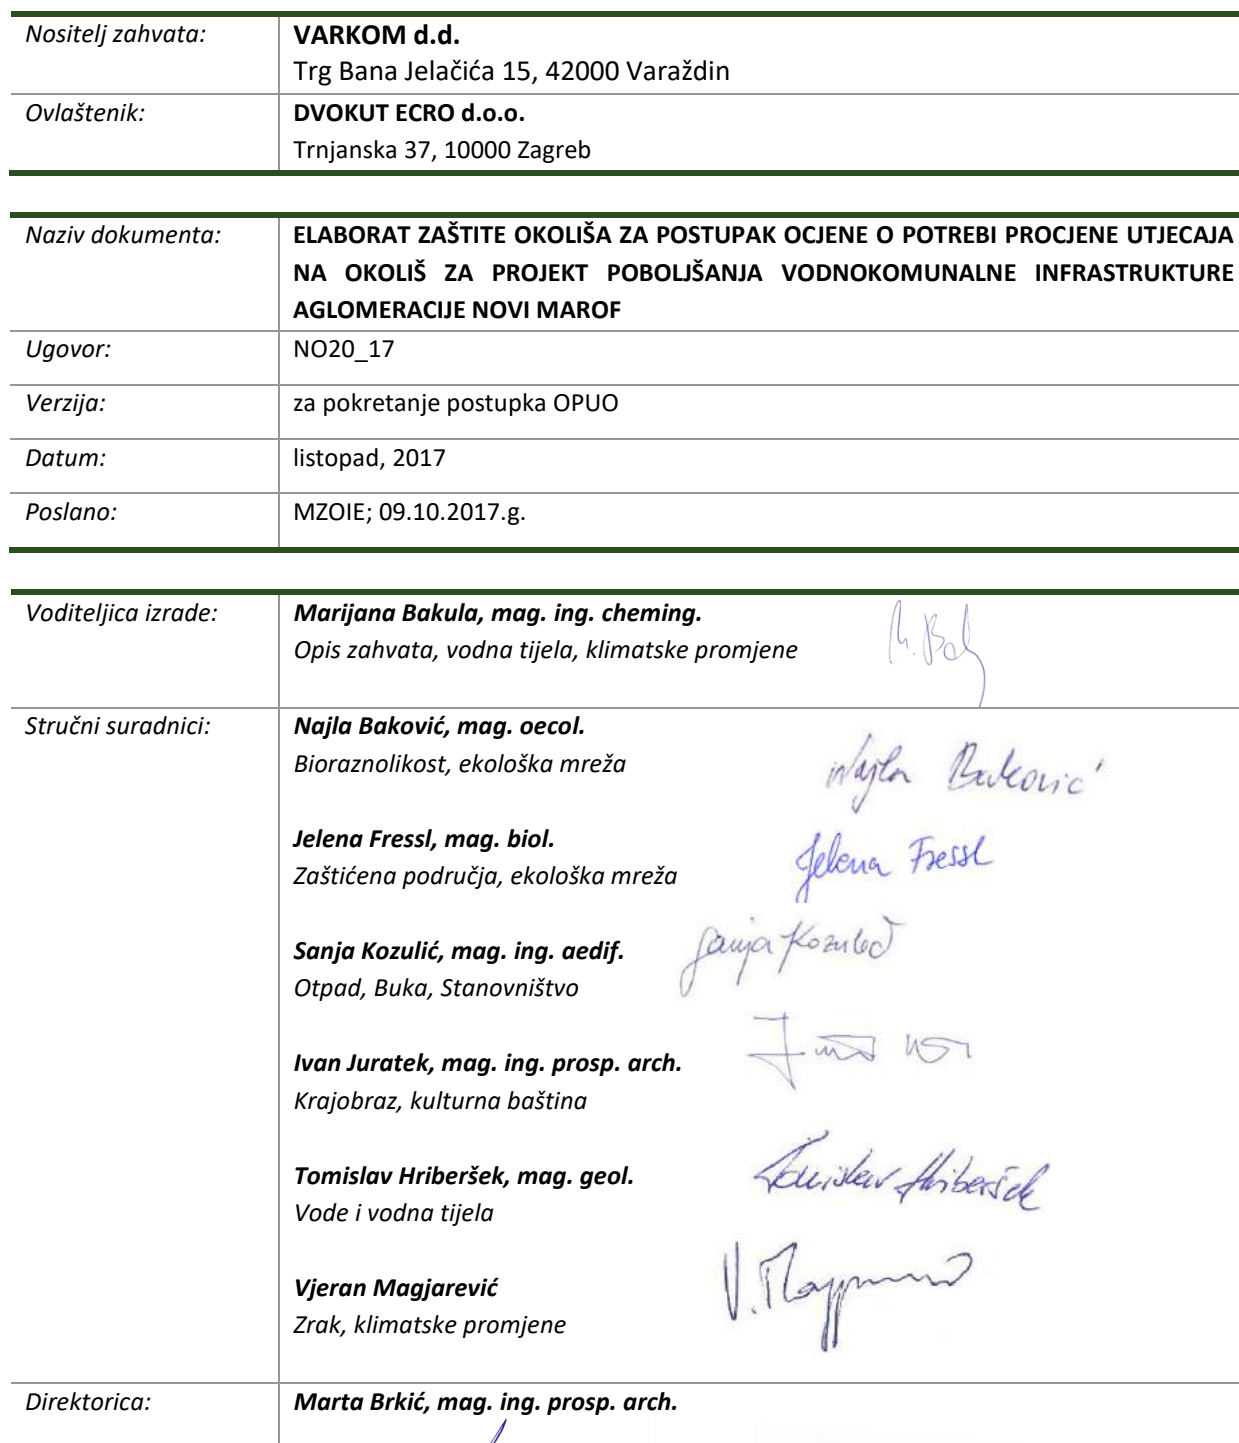 Nositelj zahvata: VARKOM d.d.
Trg Bana Jelačića 15, 42000 Varaždin
Ovlaštenik: DVOKUT ECRO d.o.o.
Trnjanska 37, 10000 Zagreb
Naziv dokumenta: ELABORAT ZAŠTITE OKOLIŠA ZA POSTUPAK OCJENE O POTREBI PROCJENE UTJECAJA
NA OKOLIŠ ZA PROJEKT POBOLJŠANJA VODNOKOMUNALNE INFRASTRUKTURE
AGLOMERACIJE NOVI MAROF
Ugovor: NO20_17
Verzija: za pokretanje postupka OPUO
Datum: listopad, 2017
Poslano: MZOIE; 09.10.2017.g.
Voditeljica izrade: Marijana Bakula, mag. ing. cheming.
Opis zahvata, vodna tijela, klimatske promjene
Stručni suradnici: Najla Baković, mag. oecol.
Bioraznolikost, ekološka mreža
Najla Baković
Jelena Fressl, mag. biol.
Zaštićena područja, ekološka mreža
Jelena Fressl
Sanja Kozulić, mag. ing. aedif.
Otpad, Buka, Stanovništvo
Sanja Kozulić
Ivan Juratek, mag. ing. prosp. arch.
Krajobraz, kulturna baština
Tomislav Hriberšek, mag. geol.
Vode i vodna tijela
Tomislav Hriberšek
Vjeran Magjarević
Zrak, klimatske promjene
Direktorica: Marta Brkić, mag. ing. prosp. arch.